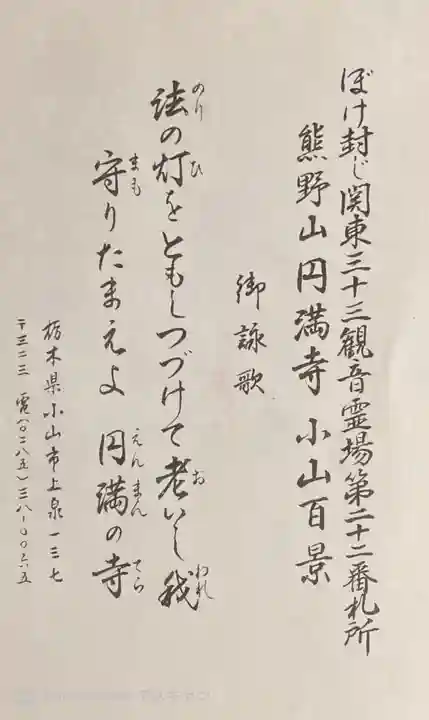 ぼけ封じ関東三十三観音霊場第二十二番札所
熊野山円満寺 小山百景
御詠歌
法の灯をともしつづけて老いし我
のり ひ お われ
守りたまえよ 円満の寺
まも えんまん てら
栃木県小山市上泉一三七
〒三二三 電(〇二八五)三八-〇〇六五